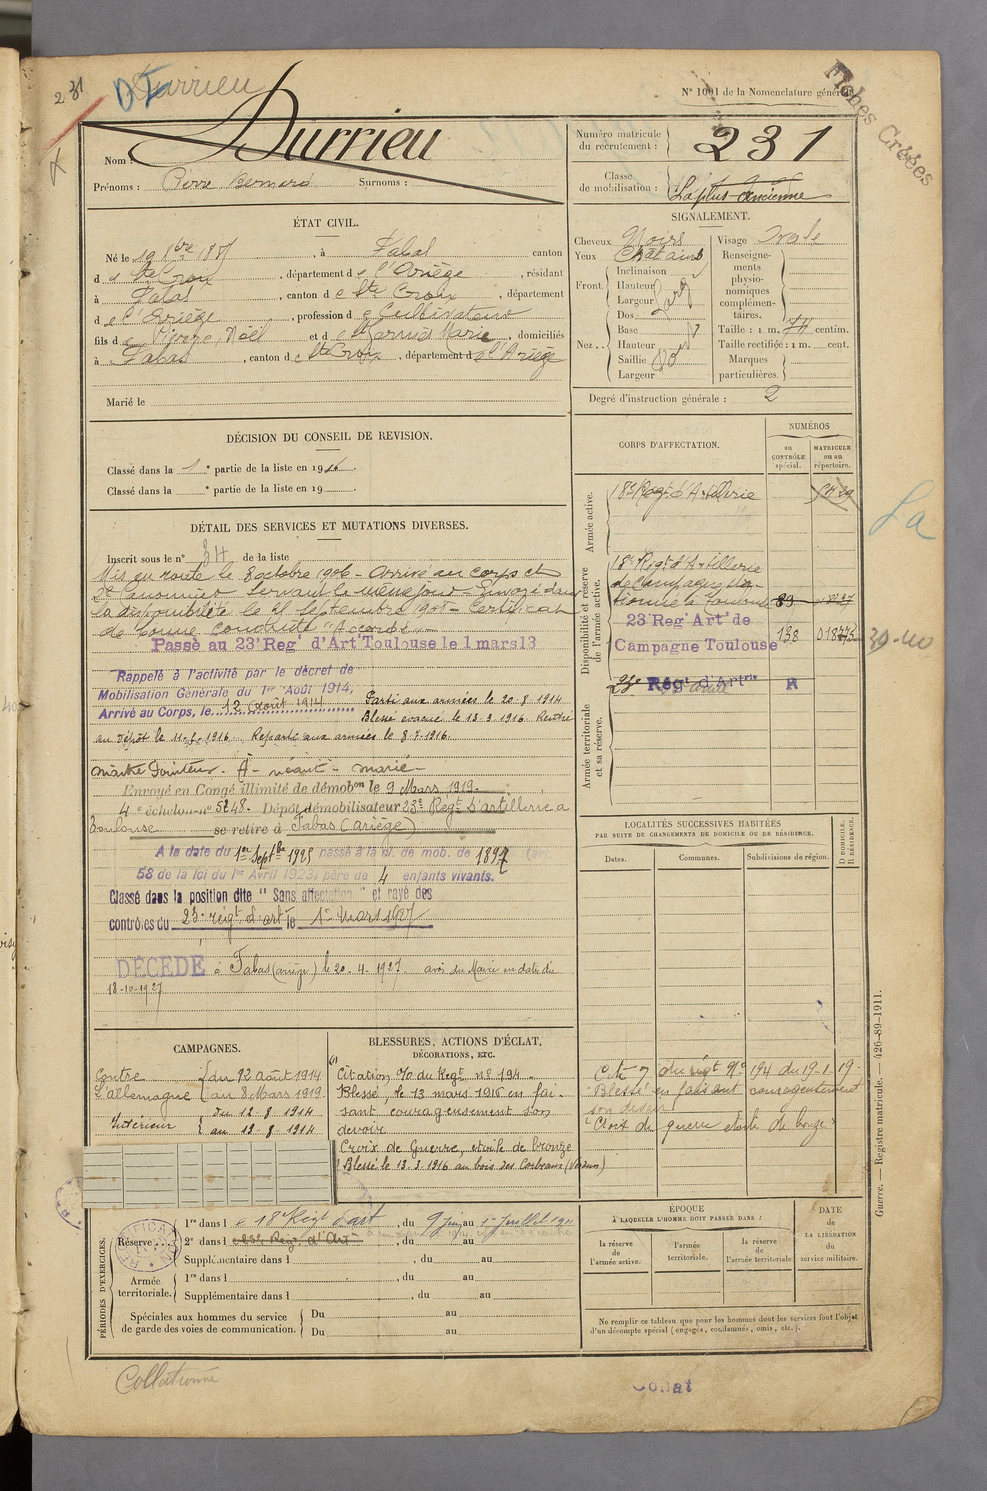 231
Durrieu
N° 1001 de la Nomenclature générale
Fiches Créées
Nom : Durrieu
Prénoms : Pierre Bernard Surnoms :
Numéro matricule du recrutement : 231
Classe de mobilisation : La plus ancienne
ÉTAT CIVIL.
Né le 19 , à Fabas canton
d e Ste Croix , département d e l'Ariège , résidant
à Fabas , canton d e Ste Croix , département
d e l'Ariège , profession d e Cultivateur
fils d e Pierre, Noël et d e Marie , domiciliés
à Fabas , canton d e Ste Croix , département d e l'Ariège
Marié le
SIGNALEMENT.
Cheveux Noirs
Yeux Chatains
Front. Inclinaison
Hauteur
Largeur
Nez.. Dos
Base
Hauteur
Saillie
Largeur
Visage Ovale
Renseignements physionomiques complémentaires.
Taille : 1 m. 74 centim.
Taille rectifiée : 1 m. cent.
Marques particulières.
Degré d'instruction générale : 2
DÉCISION DU CONSEIL DE REVISION.
Classé dans la 1 e partie de la liste en 19
Classé dans la e partie de la liste en 19
DÉTAIL DES SERVICES ET MUTATIONS DIVERSES.
Inscrit sous le n° 34 de la liste
Mis en route le 8 octobre 1906 – Arrivé au corps et
2e Canonnier Servant le même jour – Envoyé dans
la disponibilité le 28 Septembre 1908 – Certificat
de bonne conduite "Accordé" –
Passé au 23e Reg' d'Art Toulouse le 1 mars 13
Rappelé à l'activité par le décret de
Mobilisation Générale du 1er Août 1914,
Arrivé au Corps, le 12 Août 1914 Parti aux armées le 20-8-1914
Blessé évacué le 13-3-1916 Rentré
au dépôt le 1916. Reparti aux armées le 8-7-1916.
Maître Pointeur. A – néant – marié –
Envoyé en Congé illimité de démobon le 9 Mars 1919.
4e échelon n° 5248. Dépôt démobilisateur 23e Regt d'artillerie a
Toulouse se retire à Fabas (Ariège)
A la date du 1er Septbre 1925 passé à la cl. de mob. de 1897 (art.
58 de la loi du 1er Avril 1923) père de 4 enfants vivants.
Classé dans la position dite "Sans affectation" et rayé des
contrôles du 23e régt d'art le 1er mars 1927
DÉCÉDÉ à Fabas (ariège) le 20-4-1927 avis du Maire en date du
18-10-1927
CORPS D'AFFECTATION.
NUMÉROS
au CONTRÔLE spécial.
MATRICULE ou au répertoire.
Armée active.
18e Regt d'Artillerie
Disponibilité et réserve de l'armée active.
18e Regt d'Artillerie
de Campagne stationné à Toulouse 89
23 Reg' Art' de
Campagne Toulouse 138
Armée territoriale et sa réserve.
23e Reg' d'Artrie A
LOCALITÉS SUCCESSIVES HABITÉES
PAR SUITE DE CHANGEMENTS DE DOMICILE OU DE RÉSIDENCE.
Dates. Communes. Subdivisions de région.
D DOMICILE. R RÉSIDENCE.
Cité du régt N° 194 du 19-1-19-
Blessé en faisant courageusement
son devoir
Croix de guerre étoile de bronze
CAMPAGNES.
Contre l'allemagne du 12 août 1914
au 8 Mars 1919.
Intérieur du 12-8-1914
au 19-8-1914
BLESSURES, ACTIONS D'ÉCLAT,
DÉCORATIONS, ETC.
Citation % du Regt n° 194 –
Blessé, le 13 mars 1916 en fai-
sant courageusement son
devoir
Croix de Guerre, étoile de bronze
Blessé le 13.3.1916 au bois des Corbeaux (Verdun)
PÉRIODES D'EXERCICES.
Réserve 1re dans l e 18e Régt d'art , du 9 Juin au 1er Juillet 1911
2e dans l , du au
Supplémentaire dans l , du au
Armée territoriale. 1re dans l , du au
Supplémentaire dans l , du au
Spéciales aux hommes du service de garde des voies de communication. Du au
Du au
ÉPOQUE
À LAQUELLE L'HOMME DOIT PASSER DANS :
la réserve de l'armée active.
l'armée territoriale.
la réserve de l'armée territoriale
DATE de LA LIBÉRATION du service militaire.
Ne remplir ce tableau que pour les hommes dont les services font l'objet
d'un décompte spécial (engagés, condamnés, omis, etc.).
Guerre. — Registre matricule. — 426-89-1911.
Collationné
Collat